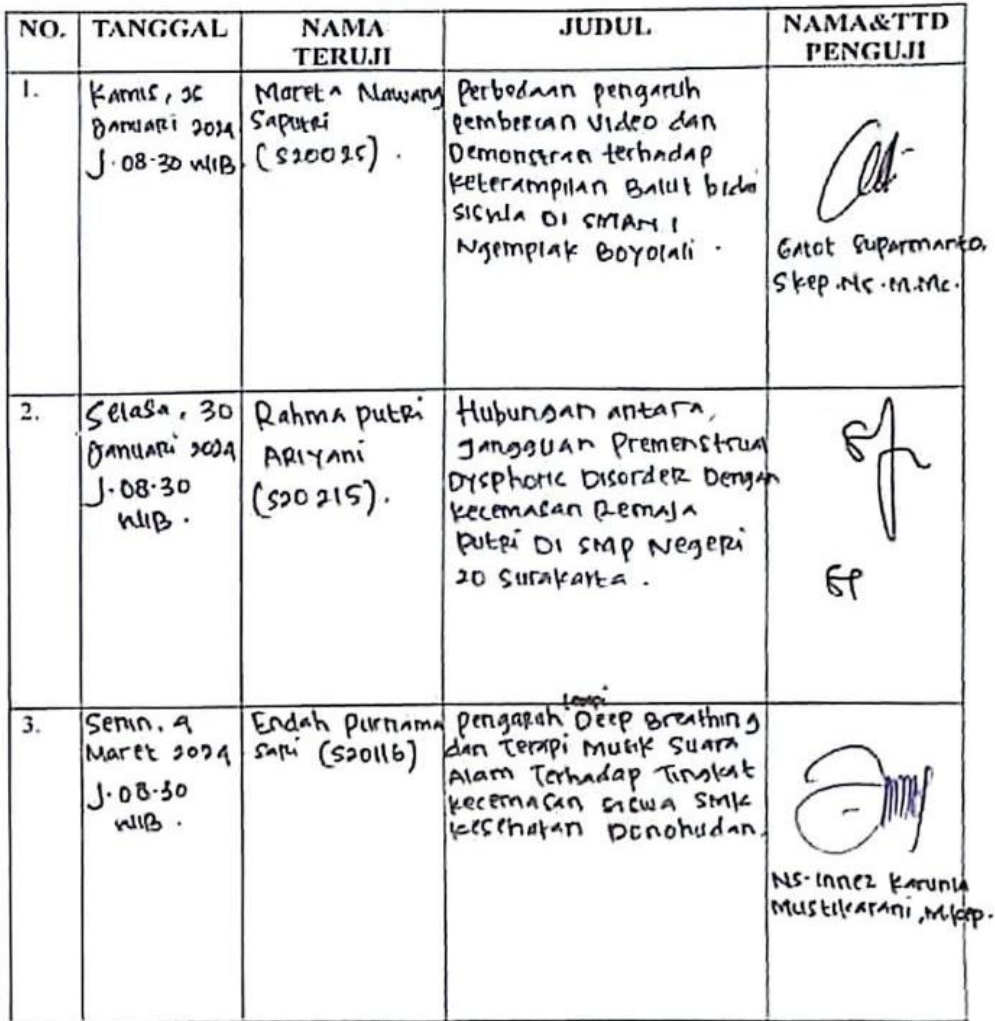 NO.
TANGGAL
NAMA
TERUJI
JUDUL
NAMA&TTD
PENGUJI
1.
Kamis, 25
Januari 2024
J. 08.30 WIB
Mareta Nawang
Saputri
(S20025).
Perbedaan pengaruh
pemberian video dan
Demonstrasi terhadap
keterampilan Balut bidai
siswa DI SMAN 1
Ngemplak Boyolali.
Gatot Suparmanto,
Skep.Ns.M.Mc.
2.
Selasa, 30
Januari 2024
J. 08.30
WIB.
Rahma putri
ARIYANI
(S20215).
Hubungan antara,
Gangguan Premenstrual
Dysphoric Disorder Dengan
kecemasan Remaja
putri DI SMP Negeri
20 Surakarta.
3.
Senin, 4
Maret 2024
J. 08.30
WIB.
Endah purnama
sari (S20116)
terapi
pengaruh Deep Breathing
dan Terapi Musik Suara
Alam Terhadap Tingkat
kecemasan siswa SMK
kesehatan Donohudan.
NS. Innez Karunia
Mustikarani, M.kep.